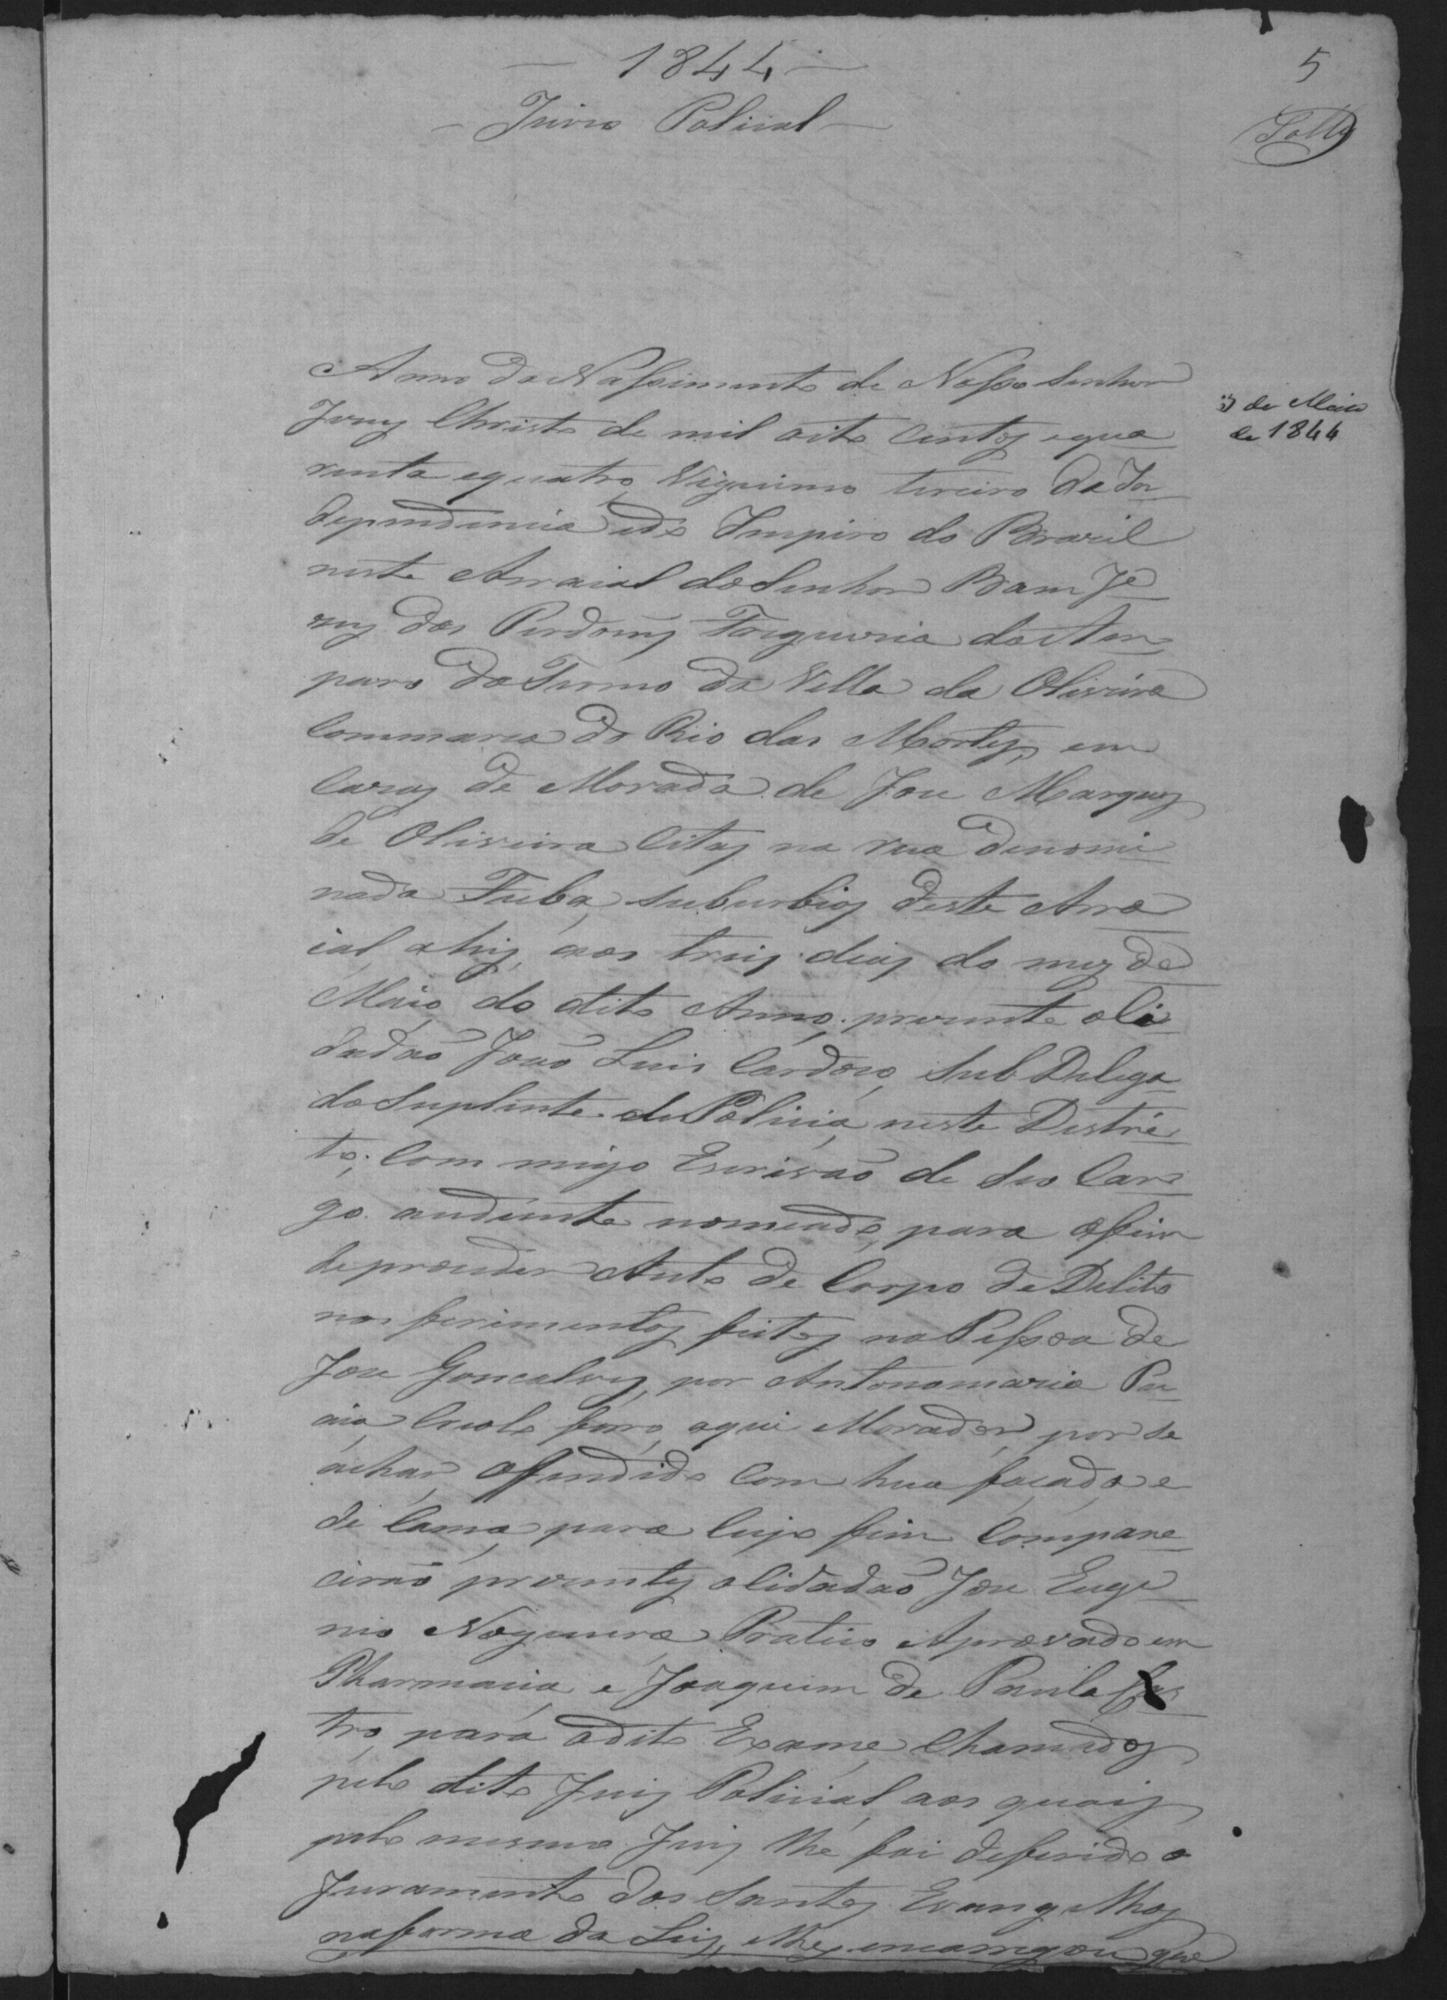 1844
Juizo Policial
5
3 de Maio
de 1844
Anno do Nassimento de Nosso Senhor
Jezuz Christo de mil oito Centos e qua
renta e quatro, Vigecimo terceiro da In
dependencia e do Imperio do Brazil
neste Arraial do Senhor Bam Je
zuz dos Perdoins Freguezia do Am
paro do Termo da Villa da Oliveira
Commarca do Rio das Mortes, em
Cazas de Morada de Joze Marques
de Oliveira Citas na rua denomi
nada Fuba, suburbios deste Arra
ial ahi, aos treis dias do mez de
Maio do dito Anno, prezente o Ci
dadão João Luis Cardozo, Sub Delega
do Suplente de Policia, neste Distri
to; Com migo Escrivão de Seo Car
go andiante nomeado, para o fim
de proceder Auto de Corpo de Delito
nos ferimentos feitos na Pessoa de
Joze Goncalves, por Antonomazia Pa
aia, Criolo forro, aqui Morador, por se
achar offendido Com hua facada, e
de Cama, para Cujo fim Compare
cerão prezentes o Cidadão Joze Euge
nio Nogueira Pratico Aprovado em
Pharmacia, e Joaquim de Paula Cas
tro para o dito Exame, Chamados
pelo dito Juiz Policial, aos quais
pelo mesmo Juiz lhe foi deferido o
Juramento dos Santos Evangelhos
na forma da Lei, e lhes encarregou que